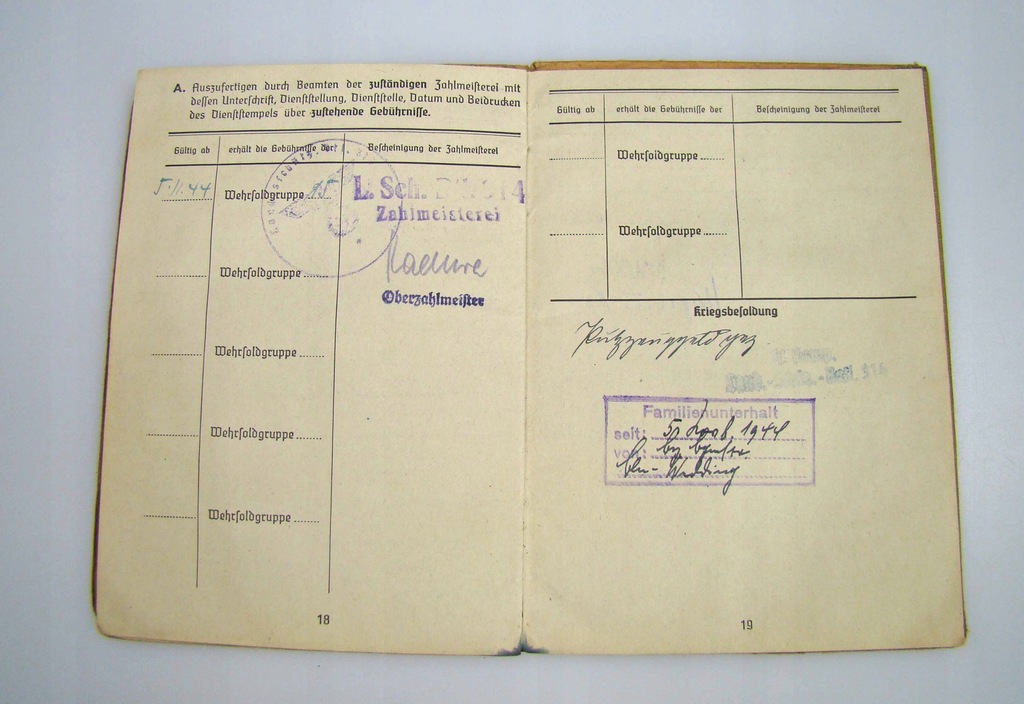 A. Auszufertigen durch Beamten der zuständigen Zahlmeisterei mit
dessen Unterschrift, Dienststellung, Dienststelle, Datum und Beidrucken
des Dienststempels über zustehende Gebührnisse.
Gültig ab erhält die Gebührnisse der Bescheinigung der Zahlmeisterei
5.11.44 Wehrsoldgruppe 15 L. Sch.
Zahlmeisterei
Wehrsoldgruppe
Oberzahlmeister
Wehrsoldgruppe
Wehrsoldgruppe
Wehrsoldgruppe
18
Gültig ab erhält die Gebührnisse der Bescheinigung der Zahlmeisterei
Wehrsoldgruppe
Wehrsoldgruppe
Kriegsbesoldung
Putzzeuggeld gez.
Familienunterhalt
seit: 5. 1944
von:
Bln- Wedding
19